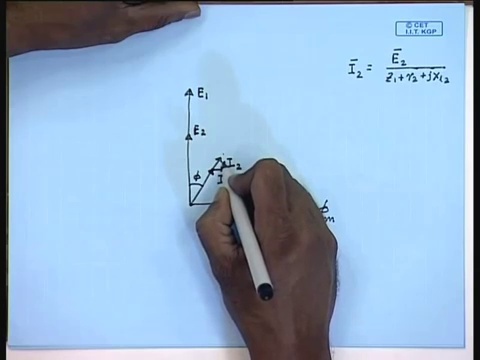 © CET
I.I.T. KGP
Ī₂ = Ē₂
z₁+r₂+jx₁₂
E₁
E₂
φ
I₂
I
φ
m